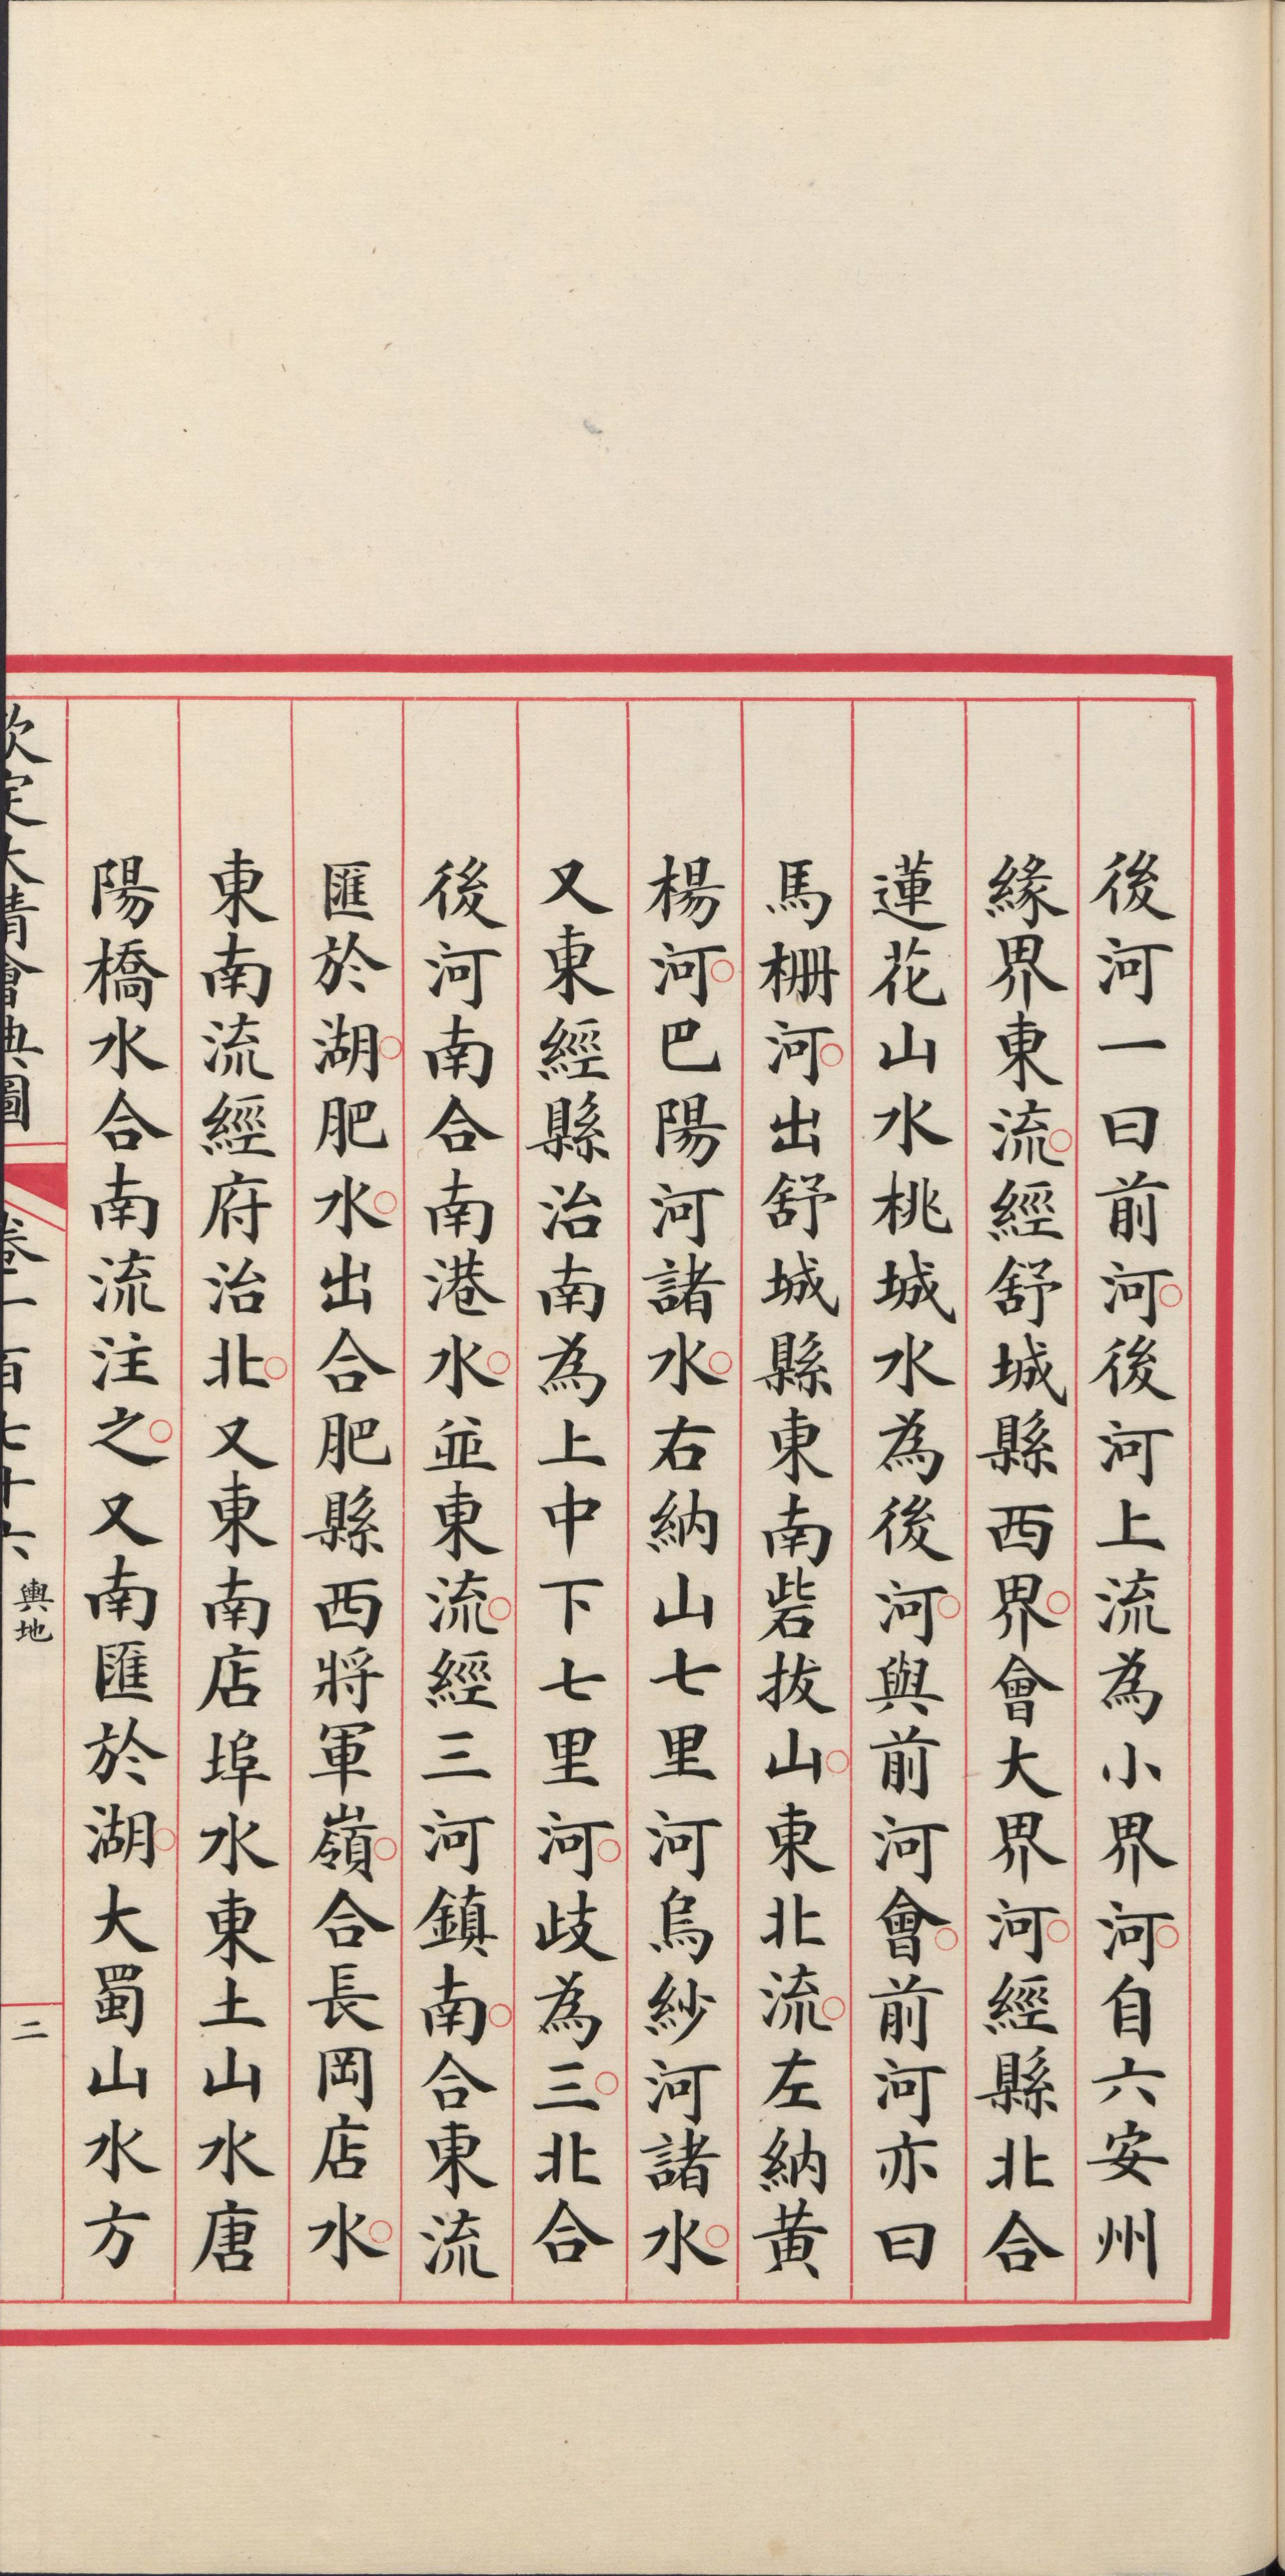 後河一曰前河○後河上流為小界河○自六安州
緣界東流○經舒城縣西界○會大界河○經縣北合
蓮花山水桃城水為後河○與前河會○前河亦曰
馬栅河○出舒城縣東南砦拔山○東北流○左納黃
楊河○巴陽河諸水○右納山七里河烏紗河諸水○
又東經縣治南為上中下七里河○歧為三○北合
後河南合南港水○並東流○經三河鎮南○合東流
匯於湖○肥水○出合肥縣西將軍嶺○合長岡店水○
東南流經府治北○又東南店埠水東土山水唐
陽橋水合南流注之○又南匯於湖○大蜀山水方
欽定大清會典圖 卷一百七十六 輿地 二